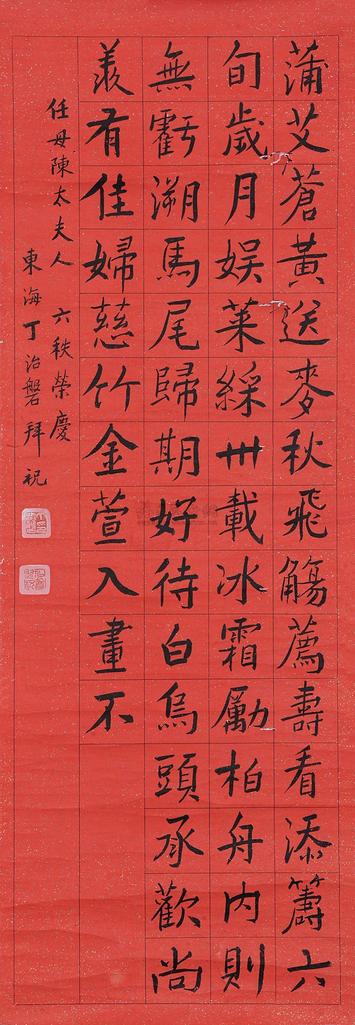 蒲艾蒼黃送麥秋飛觴薦壽看添籌六
旬歲月娛萊綵卅載冰霜勵柏舟內則
無虧溯馬尾歸期好待白烏頭承歡尚
羨有佳婦慈竹金萱入畫不
任母陳太夫人 六秩榮慶
東海丁治磐拜祝